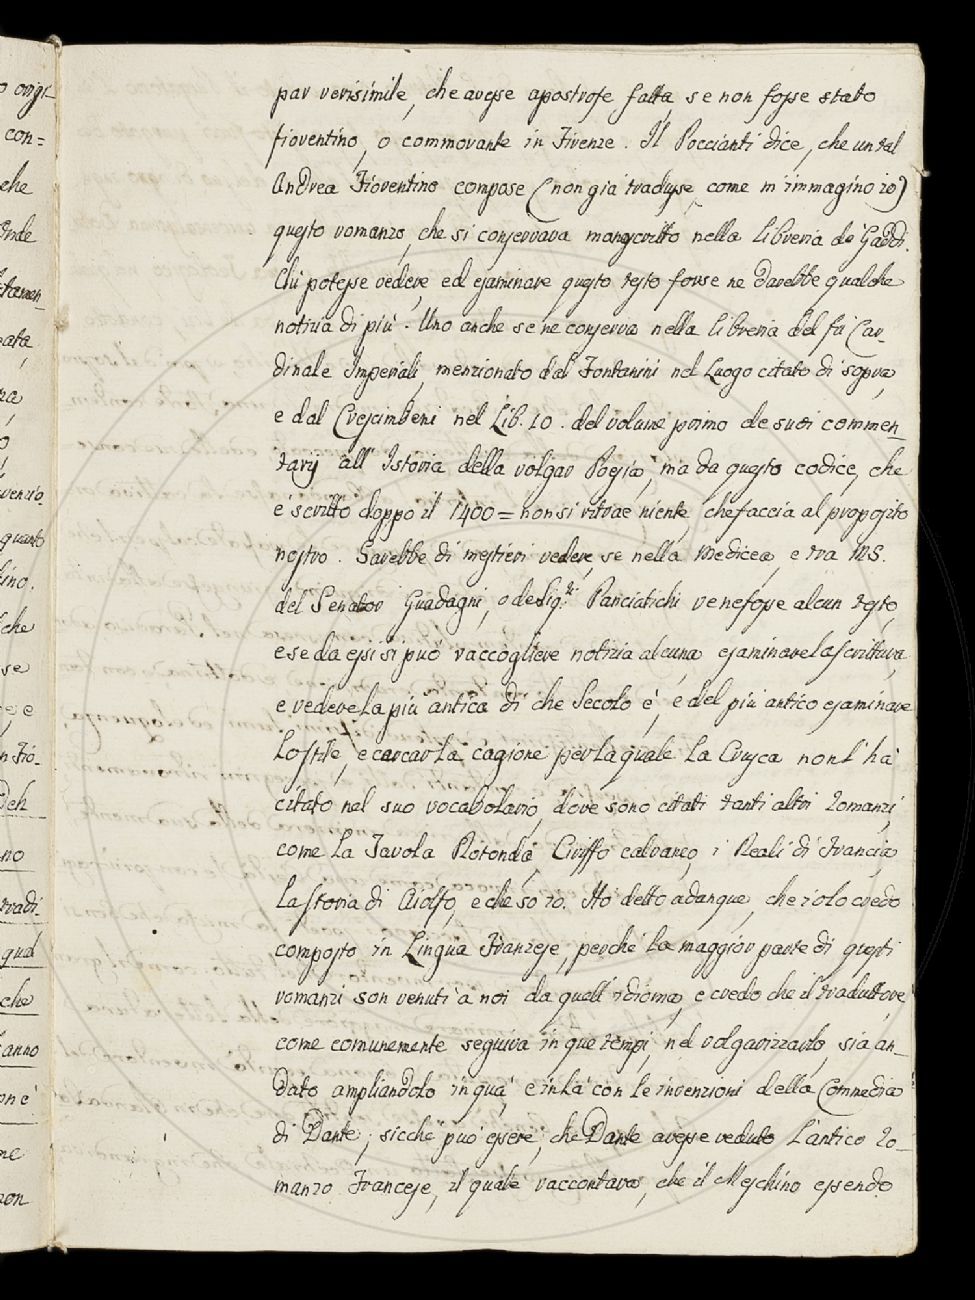 par verisimile, che avesse apostrofe fatta, se non fosse stato
fiorentino, o commorante in Firenze. Il Poccianti dice, che un tal
Andrea Fiorentino compose (non già tradusse, come m'immagino io)
questo romanzo, che si conservava manuscritto nella libreria de Gaddi.
Chi potesse vedere, ed esaminare questo testo forse ne darebbe qualche
notizia di più. Uno anche se ne conserva nella libreria del fù Car-
dinale Imperiali, menzionato dal Fontanini nel Luogo citato di sopra,
e dal Crescimbeni nel Lib. 10. del volume primo de suoi commen-
tarij all' Istoria della volgar Poesia, ma da questo codice, che
è scritto doppo il 1400 = non si ritrae niente, che faccia al proposito
nostro. Sarebbe di mestieri vedere, se nella Medicea, e tra MS.
del Senator Guadagni, o de Sig.ri Panciatichi ve ne fosse alcun testo,
e se da essi si può raccogliere notizia alcuna esaminare la scrittura,
e vedere la più antica di che Secolo è, e del più antico esaminare
Lo stile, e carcar la cagione per la quale La Crusca non l'ha
citato nel suo vocabolario, dove sono citati tanti altri Romanzi,
come La Tavola Rotonda, Ciriffo calvaneo, i Reali di Francia,
La storia di Aiolfo, e che so io. Ho detto adunque, che io lo credo
composto in Lingua Franzese, perchè la maggior parte di questi
romanzi son venuti a noi da quell' idioma, e credo che il traduttore,
come comunemente seguiva in que tempi, nel volgarizzarlo, sia an-
dato ampliandolo in quà, e in là con le invenzioni della Commedia
di Dante; sicchè può essere, che Dante avesse veduto L'antico Ro-
manzo Francese, il quale raccontava, che il Meschino essendo